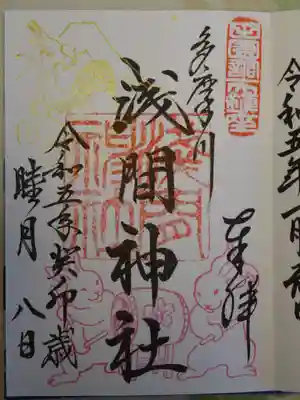 令和五年一月
奉拝
多摩川
浅間神社
令和五年癸卯歳
睦月 八日